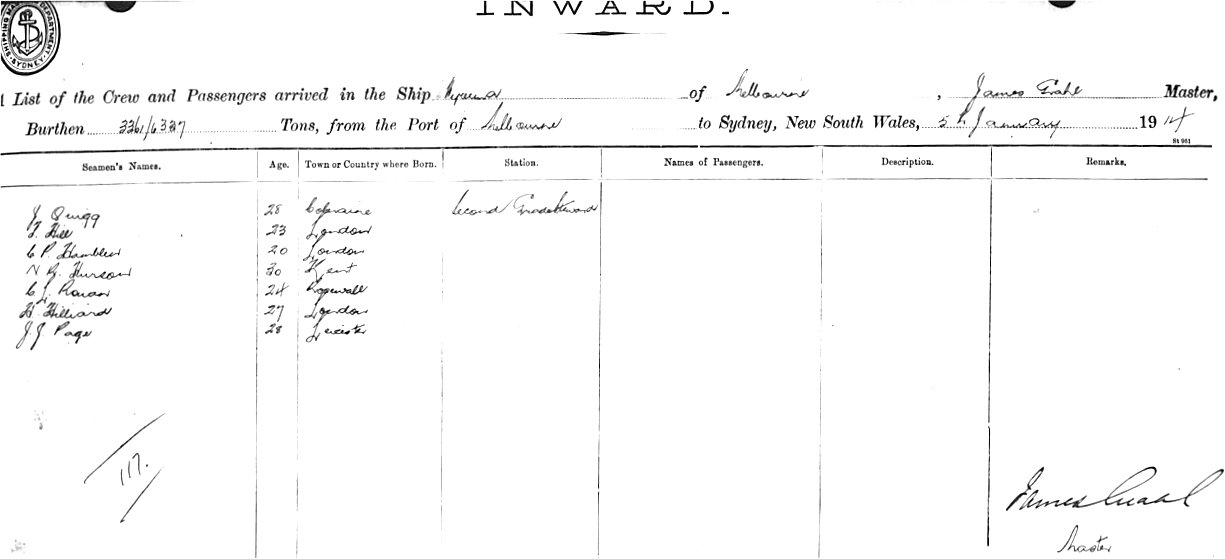 INWARD.
SHIPPING MA DEPARTMENT. SYDNEY.
List of the Crew and Passengers arrived in the Ship of Melbourne, James Master,
Burthen 3361/6337 Tons, from the Port of Melbourne to Sydney, New South Wales, 5th January 1914
St 961
Seamen's Names. Age. Town or Country where Born. Station. Names of Passengers. Description. Remarks.
J Quigg 28 Coleraine Second Grade Steward
F. Hill 23 London
C P. 20 London
30 Kent
C J. 24
H. Hilliard 27 London
J. J. Page 28 Leicester
117.
James
Master